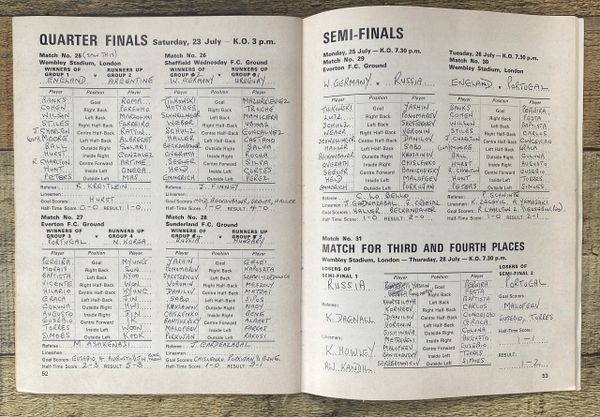 QUARTER FINALS Saturday, 23 July — K.O. 3 p.m.
Match No. 25 (SAW THIS)
Wembley Stadium, London
WINNERS OF GROUP 1 v RUNNERS UP GROUP 2
ENGLAND ARGENTINE
Player Position Player
BANKS Goal ROMA
COHEN Right Back FERREIRO
WILSON Left Back MARZOLINI
STILES Right Half-Back
J. CHARLTON Centre Half-Back RATTIN
MOORE Left Half-Back ALBRECHT
BALL Outside Right SOLARI
HURST Inside Right GONZALEZ
R. CHARLTON Centre Forward ARTIME
HUNT Inside Left ONEGA
PETERS Outside Left MAS
Referee: R. KREITLEIN
Linesmen:
Goal Scorers: HURST
Half-Time Score: 0-0 RESULT: 1-0
Match No. 26
Sheffield Wednesday F.C. Ground
WINNERS OF GROUP 2 v RUNNERS UP GROUP 1
W. GERMANY URUGUAY
Player Position Player
TILKOWSKI Goal MAZURKIEVEZ
HOTTGES Right Back TROCHE
SCHNELLINGER Left Back MANICERA
WEBER Right Half-Back
SCHULZ Centre Half-Back GONCALVEZ
HALLER Left Half-Back CAETANO
BECKENBAUER Outside Right SALVA
OVERATH Inside Right ROCHA
SEELER Centre Forward SILVA
HELD Inside Left CORTES
EMMERICH Outside Left PEREZ
Referee: J. FINNEY
Linesmen:
Goal Scorers: BECKENBAUER, SEELER, HALLER
Half-Time Score: 1-0 RESULT: 4-0
Match No. 27
Everton F.C. Ground
WINNERS OF GROUP 3 v RUNNERS UP GROUP 4
PORTUGAL N. KOREA
Player Position Player
PEREIRA Goal MYUNG
MORAIS Right Back
BAPTISTA Left Back
VICENTE Right Half-Back
HILARIO Centre Half-Back
GRACA Left Half-Back
COLUNA Outside Right
AUGUSTO Inside Right
EUSEBIO Centre Forward
TORRES Inside Left
SIMOES Outside Left
Referee: M. ASAKENASI
Linesmen:
Goal Scorers: EUSEBIO 4 AUGUSTO
Half-Time Score: 2-3 RESULT: 5-3
Match No. 28
Sunderland F.C. Ground
WINNERS OF GROUP 4 v RUNNERS UP GROUP 3
RUSSIA HUNGARY
Player Position Player
YASHIN Goal GELEI
PONOMAREV Right Back KAPOSZTA
Left Back
VORONIN Right Half-Back MESZOLY
DANILOV Centre Half-Back
SABO Left Half-Back SIPOS
Outside Right NAGY
CHISLENKO Inside Right BENE
Centre Forward ALBERT
MALOFEEV Inside Left FARKAS
PORKUJAN Outside Left RAKOSI
Referee: J GARDEAZABAL
Linesmen:
Goal Scorers: CHISLENKO PORKUJAN BENE
Half-Time Score: 1-0 RESULT: 2-1
52
SEMI-FINALS
Monday, 25 July — K.O. 7.30 p.m.
Match No. 29
Everton F.C. Ground
W. GERMANY v RUSSIA
Player Position Player
TILKOWSKI Goal YASHIN
LUTZ Right Back PONOMAREV
SCHULZ Left Back
WEBER Right Half-Back VORONIN
SCHNELLINGER Centre Half-Back DANILOV
HALLER Left Half-Back SABO
BECKENBAUER Outside Right
OVERATH Inside Right CHISLENKO
SEELER Centre Forward
HELD Inside Left MALOFEEV
EMMERICH Outside Left PORKUJAN
Referee: C. LO BELLO
Linesmen: J. GARDEAZABAL
Goal Scorers: HALLER BECKENBAUER
Half-Time Score: 1-0 RESULT: 2-1
Tuesday, 26 July — K.O. 7.30 p.m.
Match No. 30
Wembley Stadium, London
ENGLAND v PORTUGAL
Player Position Player
BANKS Goal PEREIRA
COHEN Right Back FESTA
WILSON Left Back BATISTA
STILES Right Half-Back CARLOS
J. CHARLTON Centre Half-Back
MOORE Left Half-Back GRACA
BALL Outside Right COLUNA
HURST Inside Right AUGUSTO
R. CHARLTON Centre Forward EUSEBIO
HUNT Inside Left TORRES
PETERS Outside Left SIMOES
Referee: P. SCHWINTE
Linesmen:
Goal Scorers: R. CHARLTON 2 EUSEBIO (PEN)
Half-Time Score: 1-0 RESULT: 2-1
Match No. 31
MATCH FOR THIRD AND FOURTH PLACES
Wembley Stadium, London — Thursday, 28 July — K.O. 7.30 p.m.
LOSERS OF SEMI-FINAL 1
RUSSIA
Referee:
K. DAGNALL
Linesmen:
K. HOWLEY
ALI KANDIL
Player Position Player
YASHIN Goal PEREIRA
Right Back FESTA
Left Back BATISTA
Right Half-Back CARLOS
VORONIN Centre Half-Back
Left Half-Back GRACA
Outside Right COLUNA
METREVELI Inside Right AUGUSTO
MALOFEEV Centre Forward EUSEBIO
Inside Left TORRES
Outside Left SIMOES
LOSERS OF SEMI-FINAL 2
PORTUGAL
Goal Scorers:
MALOFEEV
EUSEBIO, TORRES
Half-Time Score:
1-1
RESULT:
1-2
53